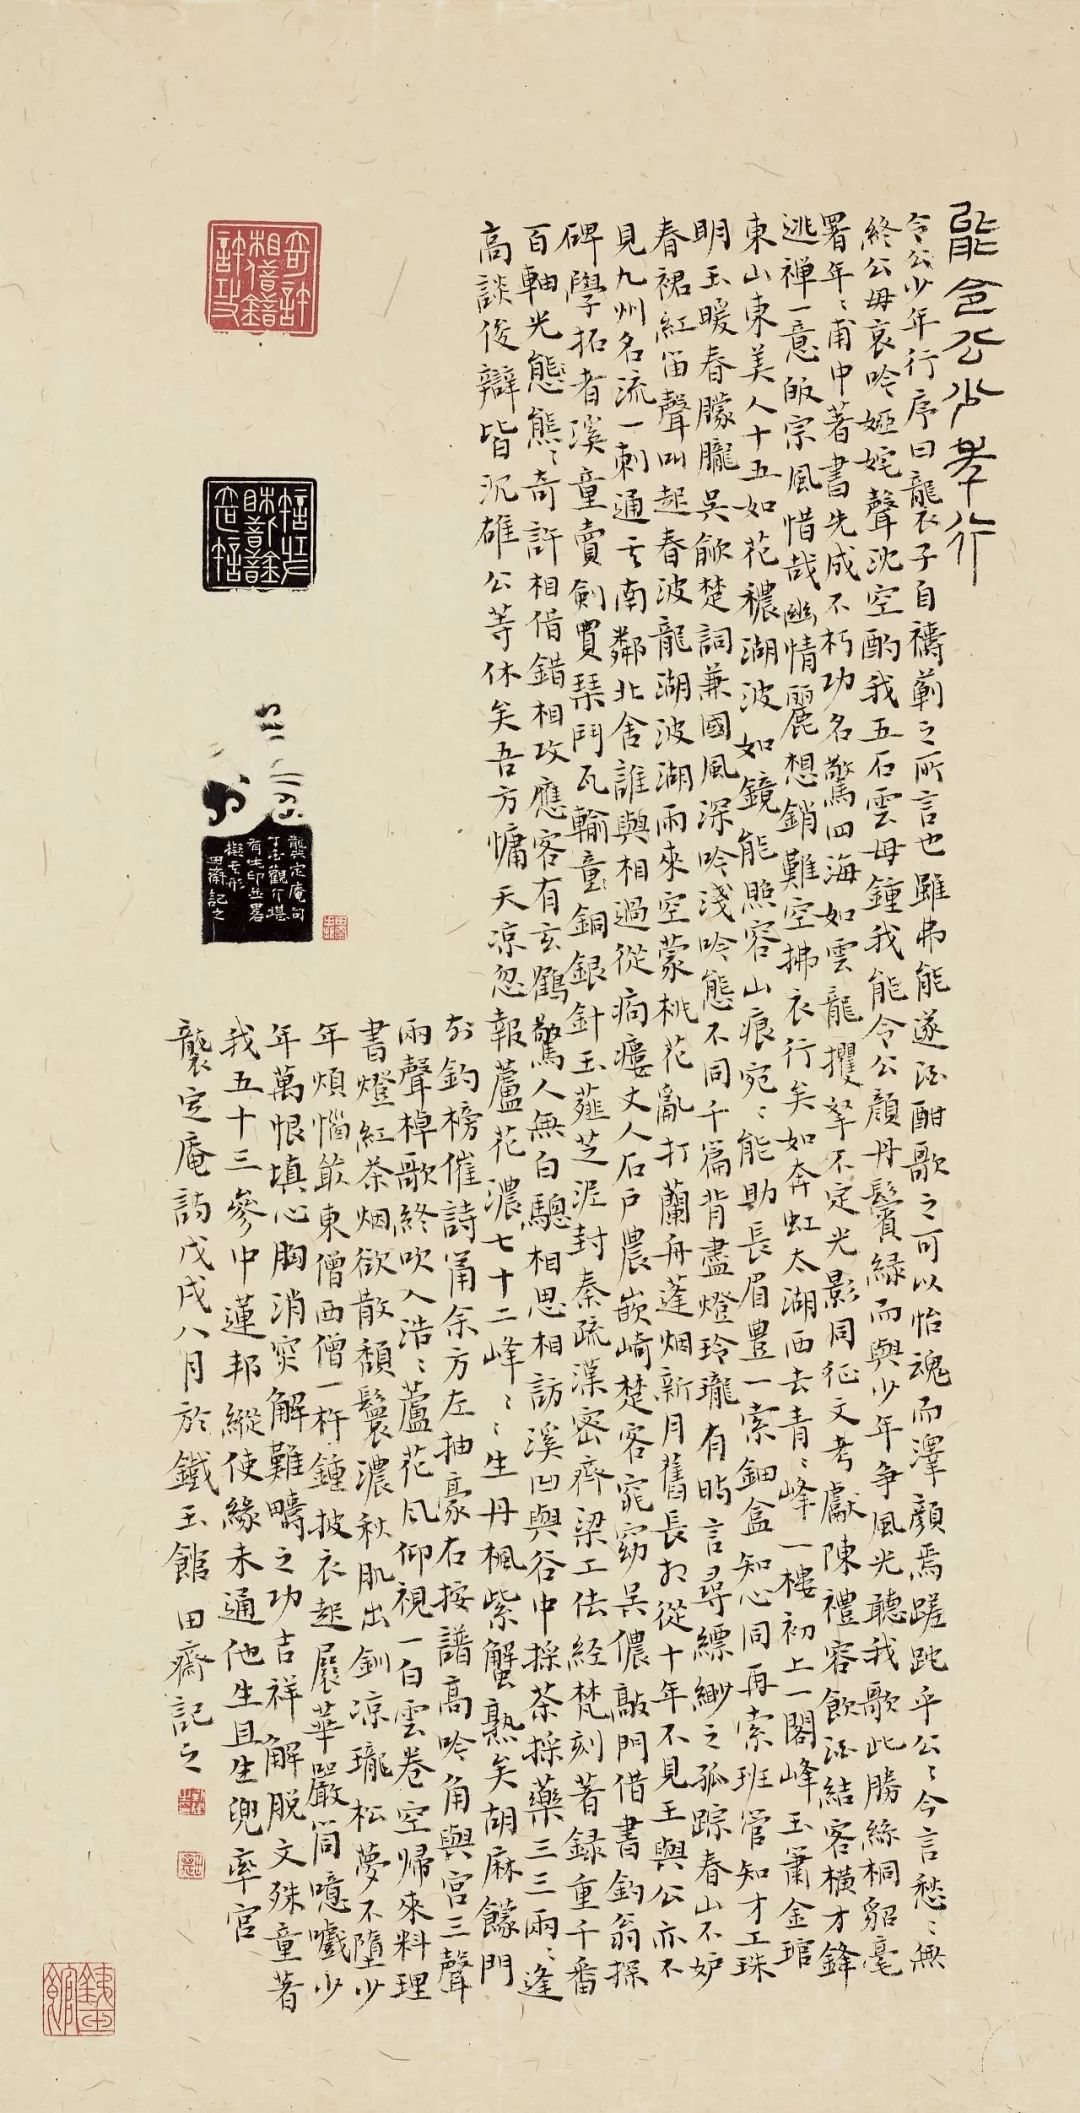 能令公少年行
令公少年行序曰龔子自禱蘄之所言也雖弗能遂酒酣歌之可以怡魂而澤顏焉蹉跎乎公ミ今言愁ミ無
終公毋哀吟婭姹聲沈空酌我五石雲母鍾我能令公顏丹鬢綠而與少年爭風光聽我歌此勝絲桐貂毫
署年ミ甫中著書先成不朽功名驚四海如雲龍攫拏不定光影同征文考獻陳禮容飲酒結客橫才鋒
逃禪一意皈宗風惜哉幽情麗想銷難空拂衣行矣如奔虹太湖西去青ミ峰一樓初上一閣峰玉簫金琯
東山東美人十五如花穠湖波如鏡能照容山痕宛ミ能助長眉豐一索鈿盒知心同再索班管知才工珠
明玉暖春朦朧吳歈楚詞兼國風深吟淺吟態不同千篇背盡燈玲瓏有時言尋縹緲之孤踪春山不妒
春裙紅笛聲叫起春波龍湖波湖雨來空蒙桃花亂打蘭舟蓬烟新月舊長相從十年不見王與公亦不
見九州名流一刺通其南鄰北舍誰與相過從痀瘻丈人石戶農嵚崎楚客窕窈吳儂敲門借書釣翁探
碑學拓者溪童賣劍買琴鬥瓦輸童銅銀針玉薤芝泥封秦疏漢密齊梁工佉經梵刻著錄重千番
百軸光態熊ミ奇許相借錯相攻應客有玄鶴驚人無白驄相思相訪溪凹與谷中採茶採藥三三兩ミ逢
高談俊辯皆沉雄公等休矣吾方慵天涼忽報蘆花濃七十二峰ミミ生丹楓紫蟹熟矣胡麻饛門
前釣榜催詩筩余方左抽豪右按譜高吟角與宮三聲
兩聲棹歌終吹入浩ミ蘆花風仰視一白雲卷空歸來料理
書燈紅茶烟欲散頹鬟濃秋肌出釧涼瓏松夢不墮少
年煩惱叢東僧西僧一杵鍾披衣起展華嚴筒噫嚱少
年萬恨填心胸消災解難疇之功吉祥解脫文殊童著
我五十三參中蓮邦縱使緣未通他生且生兜率宮
龔定庵詩戊戌八月於鐵玉館田齋記之
奇許相借錯許攻
龔定庵句